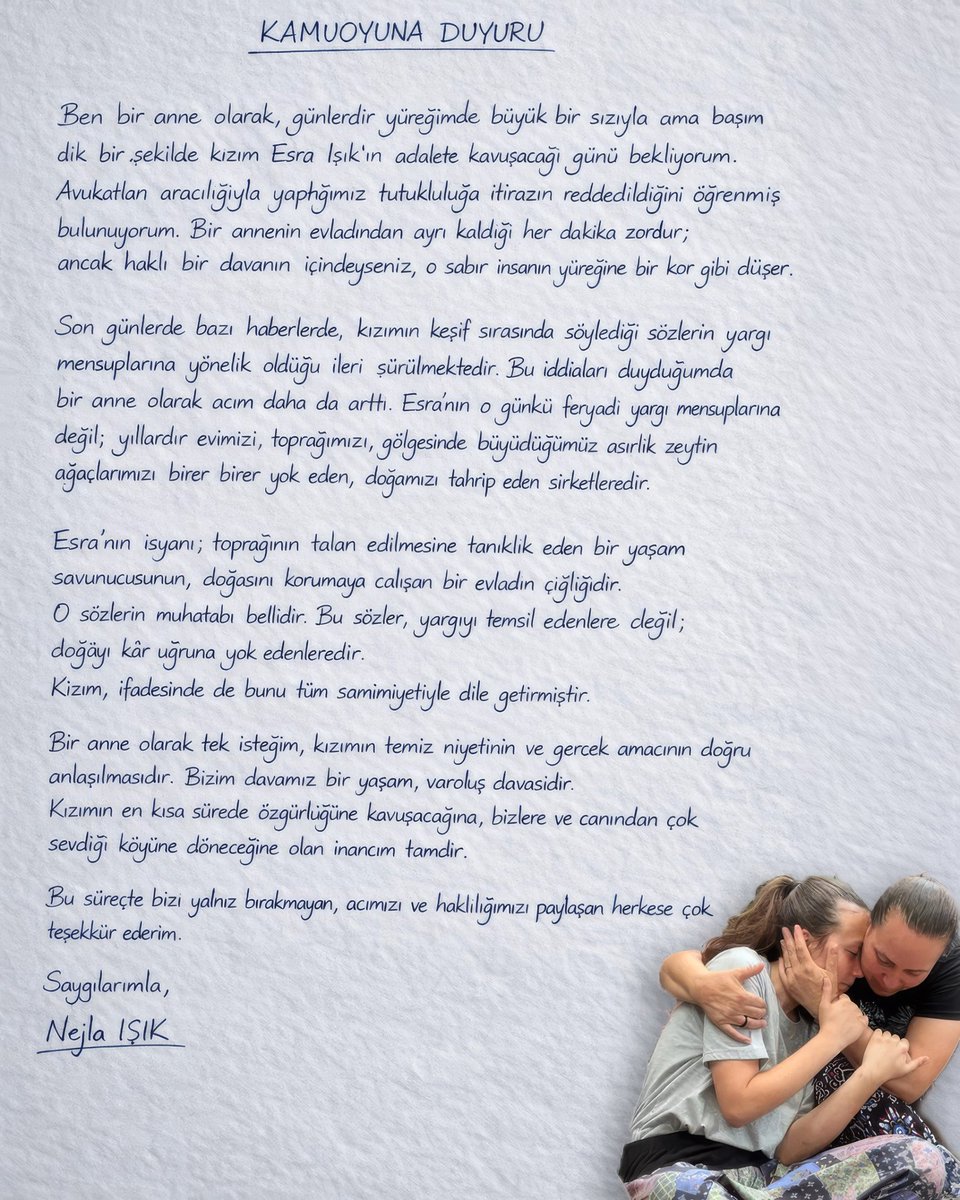 KAMUOYUNA DUYURU
Ben bir anne olarak, günlerdir yüreğimde büyük bir sızıyla ama başım
dik bir şekilde kızım Esra Işık'ın adalete kavuşacaği günü bekliyorum.
Avukatlan aracılığiyla yaptığımız tutukluluğa itirazın reddedildiğini öğrenmiş
bulunuyorum. Bir annenin evladından ayrı kaldiği her dakika zordur;
ancak haklı bir davanın içindeyseniz, o sabır insanın yüreğine bir kor gibi düşer.
Son günlerde bazı haberlerde, kızımın keşif sırasında söylediği sözlerin yargı
mensuplarına yönelik oldüğu ileri sürülmektedir. Bu iddiaları duyduğumda
bir anne olarak acım daha da arttı. Esra'nın o günkü feryadi yargı mensuplarına
değil; yıllardır evimizi, toprağımızı, gölgesinde büyüdüğümüz asırlik zeytin
ağaçlarımızı birer birer yok eden, doğamızı tahrip eden sirketleredir.
Esra'nın isyanı; toprağının talan edilmesine tanıklik eden bir yaşam
savunucusunun, doğasını korumaya calışan bir evladın çiğliğidir.
O sözlerin muhatabı bellidir. Bu sözler, yargıyı temsil edenlere değil;
doğäyı kâr uğruna yok edenleredir.
Kizım, ifadesinde de bunu tüm samimiyetiyle dile getirmiştir.
Bir anne olarak tek isteğim, kızımın temiz niyetinin ve gercek amacının doğru
anlaşılmasıdır. Bizim davamız bir yaşam, varoluş davasidir.
Kızımın en kısa sürede özgürlüğüne kavuşacağına, bizlere ve canından çok
sevdiği köyüne döneceğine olan inancım tamdir.
Bu süreçte bizi yalnız bırakmayan, acımızı ve haklilığımızı paylaşan herkese çok
teşekkür ederim.
Saygılarımla,
Nejla IŞIK